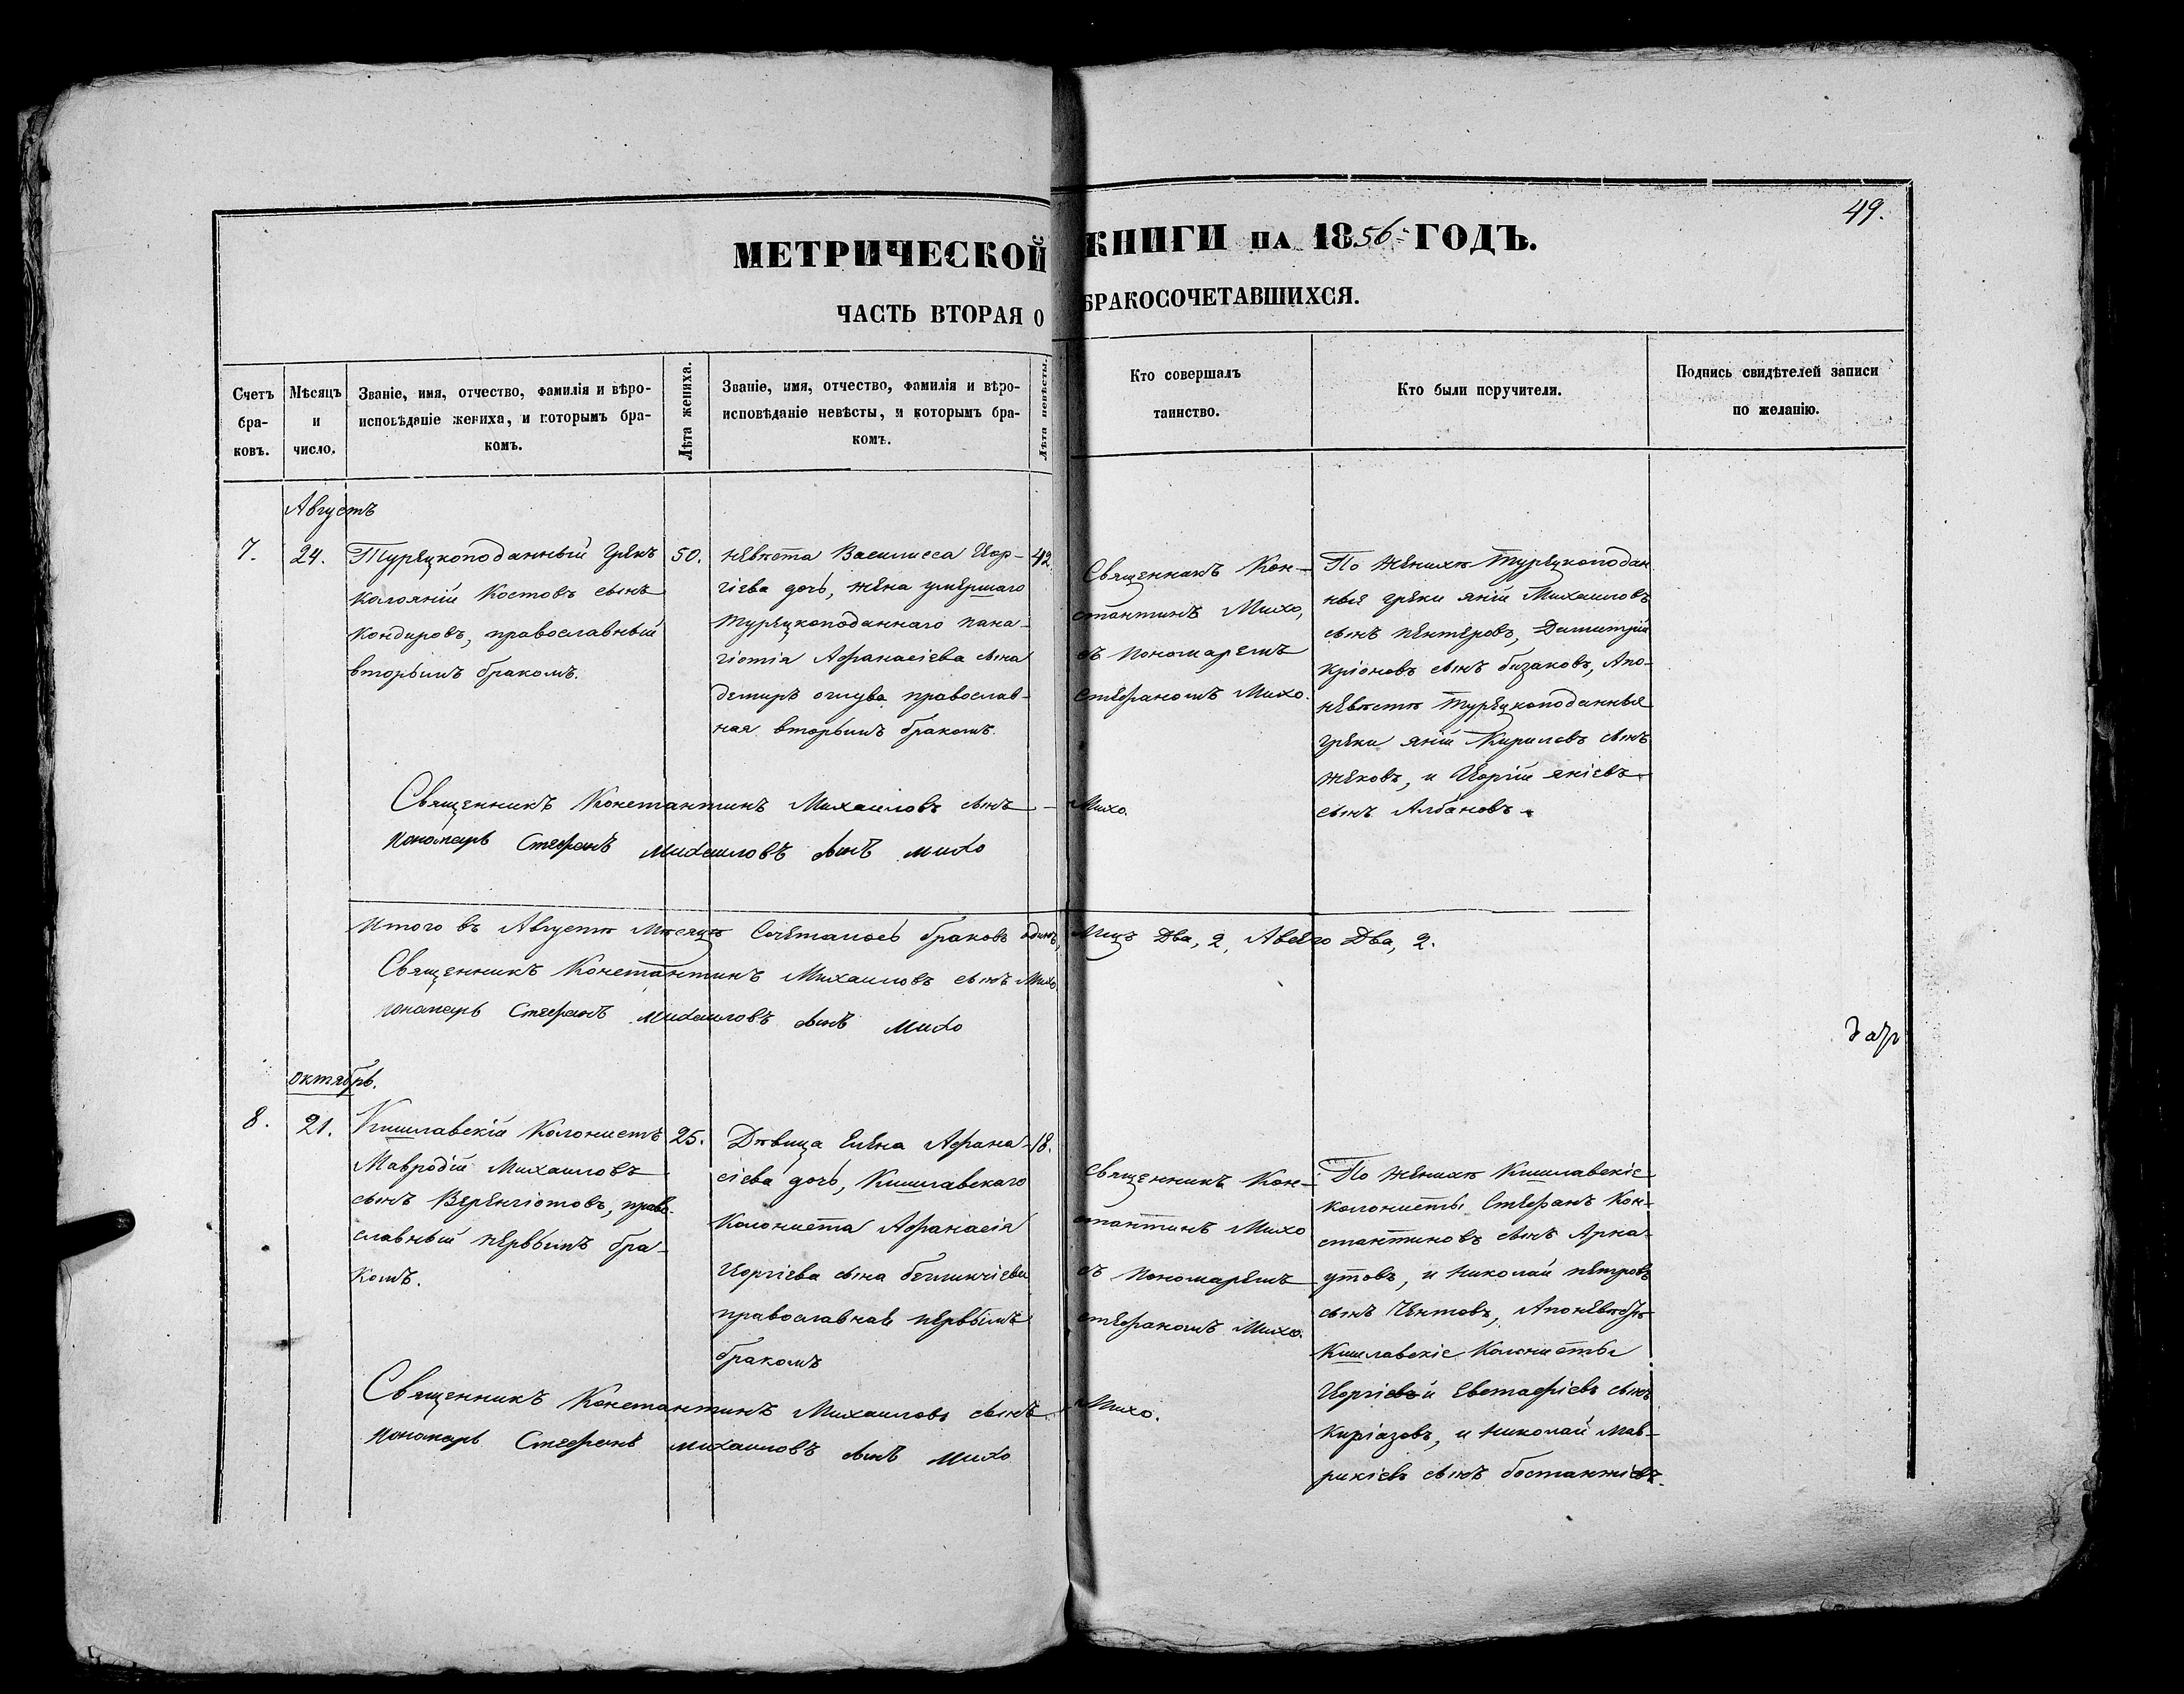 49.
МЕТРИЧЕСКОЙ КНИГИ НА 1856 ГОДЪ.
ЧАСТЬ ВТОРАЯ О БРАКОСОЧЕТАВШИХСЯ.
Счетъ браковъ.
Мѣсяцъ и число.
Званіе, имя, отчество, фамилія и вѣро-
исповѣданіе жениха, и которымъ бра-
комъ.
Лѣта жениха.
Званіе, имя, отчество, фамилія и вѣро-
исповѣданіе невѣсты, и которымъ бра-
комъ.
Лѣта невѣсты.
Кто совершалъ
таинство.
Кто были поручители.
Подпись свидѣтелей записи
по желанію.
Августъ
7.
24.
Турецкоподанный грекъ
Калояній Костовъ сынъ
Кондировъ, православный
вторымъ бракомъ.
50.
невѣста Василисса Иор-
гіева дочь, жена умершаго
турецкоподаннаго пана-
гіотія Афанасіева сына
демиръ оглува православ-
ная вторымъ бракомъ.
42.
Священникъ Кон-
стантинъ Михо,
съ пономаремъ
Стефаномъ Михо.
По женихѣ турецкоподан
ные греки яній Михаиловъ
сынъ пентеровъ, Димитрій
Кріоновъ сынъ бизаковъ, Апо-
невѣстѣ турецкоподанные
греки яній Кириловъ сынъ
жековъ, и Иоргій яніевъ
сынъ Албановъ.
Священникъ Константинъ Михаиловъ сынъ Михо.
Пономарь Стефанъ Михаиловъ сынъ Михо
Итого въ Августѣ Мѣсяцѣ Сочеталось браковъ одинъ, Лицъ Два, 2, Авсего Два, 2.
Священникъ Константинъ Михаиловъ сынъ Михо
пономарь Стефанъ Михаиловъ сынъ Михо
октябрь.
8.
21.
Кишлавскій Колонистъ
Мавродій Михаиловъ
сынъ Веренгіотовъ, право-
славный первымъ бра-
комъ.
25.
Дѣвица Елена Афана-
сіева дочь, Кишлавскаго
Колониста Афанасія
Иоргіева сына бегликчіева
православная первымъ
бракомъ
18.
священникъ Кон-
стантинъ Михо
съ пономаремъ
стефаномъ Михо.
По женихѣ Кишлавскіе
колонисты Стефанъ Кон-
стантиновъ сынъ Арна-
утовъ, и Николай петровъ
сынъ Чентовъ, Апоневѣстѣ
Кишлавскіе Колонисты
Иоргіевъ и Евстафіевъ сынъ
Киріазовъ, и Николай Мав-
рикіевъ сынъ бостанжіевъ.
Священникъ Константинъ Михаиловъ сынъ Михо.
Пономарь Стефанъ Михаиловъ сынъ Михо